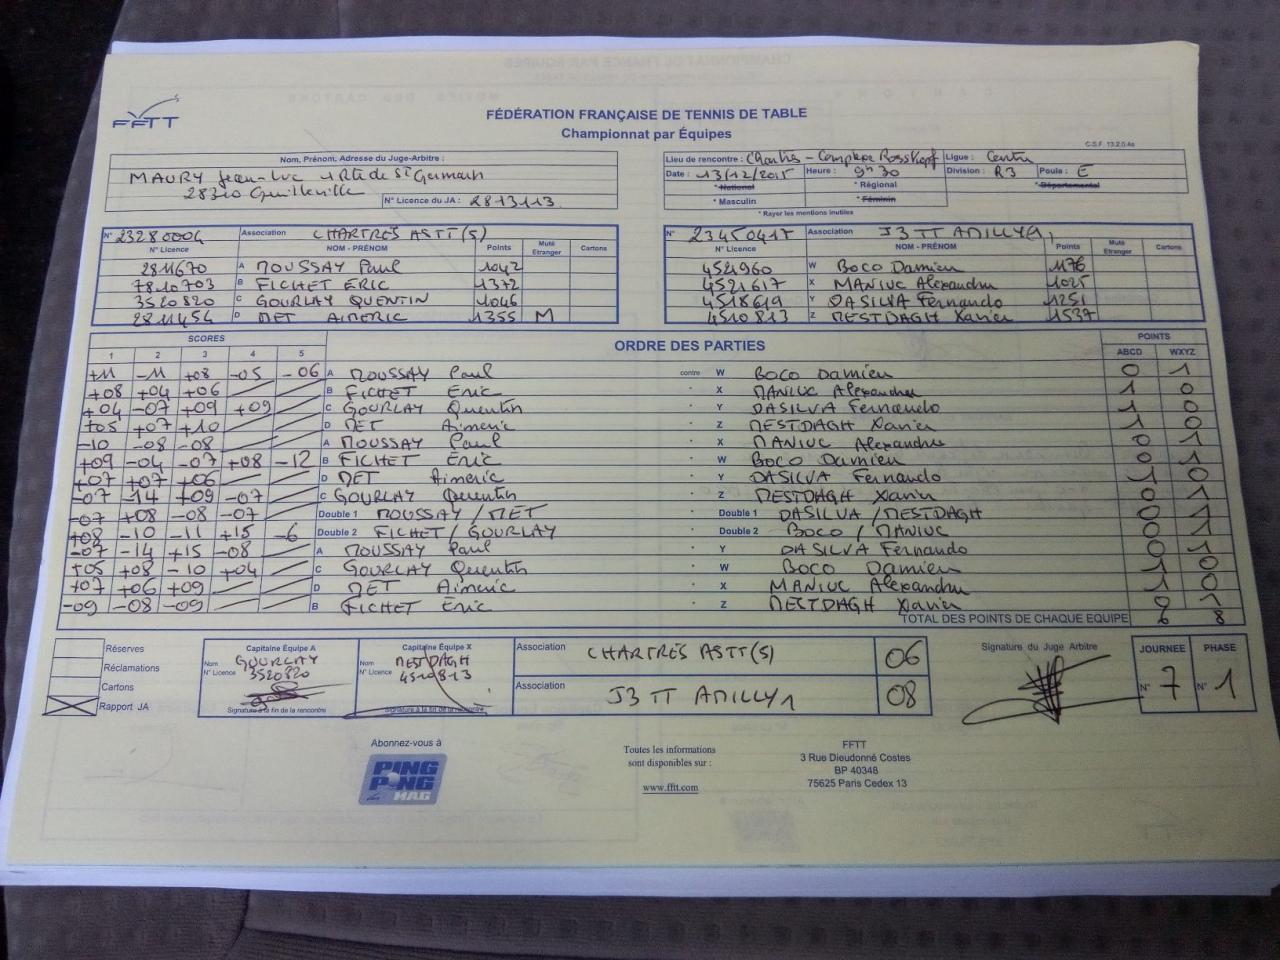 FFTT
FÉDÉRATION FRANÇAISE DE TENNIS DE TABLE
Championnat par Équipes
C.S.F. 13.2.0.4a
Nom, Prénom, Adresse du Juge-Arbitre :
MAURY Jean-Luc 4 Rte de St Germain
28310 Guilleville
N° Licence du JA : 2813113
Lieu de rencontre : Chartres - Complexe Rosskopf Ligue : Centre
Date : 13/12/2015 Heure : 9h30 Division : R3 Poule : E
* National * Régional * Départemental
* Masculin * Féminin
* Rayer les mentions inutiles
N° 23280004 Association CHARTRES ASTT(5)
N° Licence NOM - PRÉNOM Points Muté Etranger Cartons
2811670 A MOUSSAY Paul 1042
7810703 B FICHET ERIC 1372
3520820 C GOURLAY QUENTIN 1046
2811454 D MET AIMERIC 1355 M
N° 23450417 Association J3 TT AMILLY 1
N° Licence NOM - PRÉNOM Points Muté Etranger Cartons
4521960 W BOCO Damien 1176
4521617 X MANIUC Alexandru 1025
4518619 Y DASILVA Fernando 1251
4510813 Z MESTDAGH Xavier 1537
SCORES ORDRE DES PARTIES POINTS
1 2 3 4 5 ABCD WXYZ
+11 -11 +08 -05 -06 A MOUSSAY Paul contre W BOCO Damien 0 1
+08 +04 +06 B FICHET Eric " X MANIUC Alexandru 1 0
+04 -07 +09 +09 C GOURLAY Quentin " Y DASILVA Fernando 1 0
+05 +07 +10 D MET Aimeric " Z MESTDAGH Xavier 1 0
-10 -08 -08 A MOUSSAY Paul " X MANIUC Alexandru 0 1
+09 -04 -07 +08 -12 B FICHET Eric " W BOCO Damien 0 1
+07 +07 +06 D MET Aimeric " Y DASILVA Fernando 1 0
-07 -14 +09 -07 C GOURLAY Quentin " Z MESTDAGH Xavier 0 1
-07 +08 -08 -07 Double 1 MOUSSAY / MET " Double 1 DASILVA / MESTDAGH 0 1
+08 -10 -11 +15 -6 Double 2 FICHET / GOURLAY " Double 2 BOCO / MANIUC 0 1
-07 -14 +15 -08 A MOUSSAY Paul " Y DASILVA Fernando 0 1
+05 +08 -10 +04 C GOURLAY Quentin " W BOCO Damien 1 0
+07 +06 +09 D MET Aimeric " X MANIUC Alexandru 1 0
-09 -08 -09 B FICHET Eric " Z MESTDAGH Xavier 0 1
TOTAL DES POINTS DE CHAQUE EQUIPE 6 8
Réserves
Réclamations
Cartons
Rapport JA
Capitaine Équipe A
Nom GOURLAY
N° Licence 3520820
Signature à la fin de la rencontre
Capitaine Équipe X
Nom MESTDAGH
N° Licence 4510813
Signature à la fin de la rencontre
Association CHARTRES ASTT(5) 06
Association J3 TT AMILLY 1 08
Signature du Juge Arbitre
JOURNEE PHASE
N° 7 N° 1
Abonnez-vous à
PING PONG MAG
Toutes les informations
sont disponibles sur :
www.fftt.com
FFTT
3 Rue Dieudonné Costes
BP 40348
75625 Paris Cedex 13